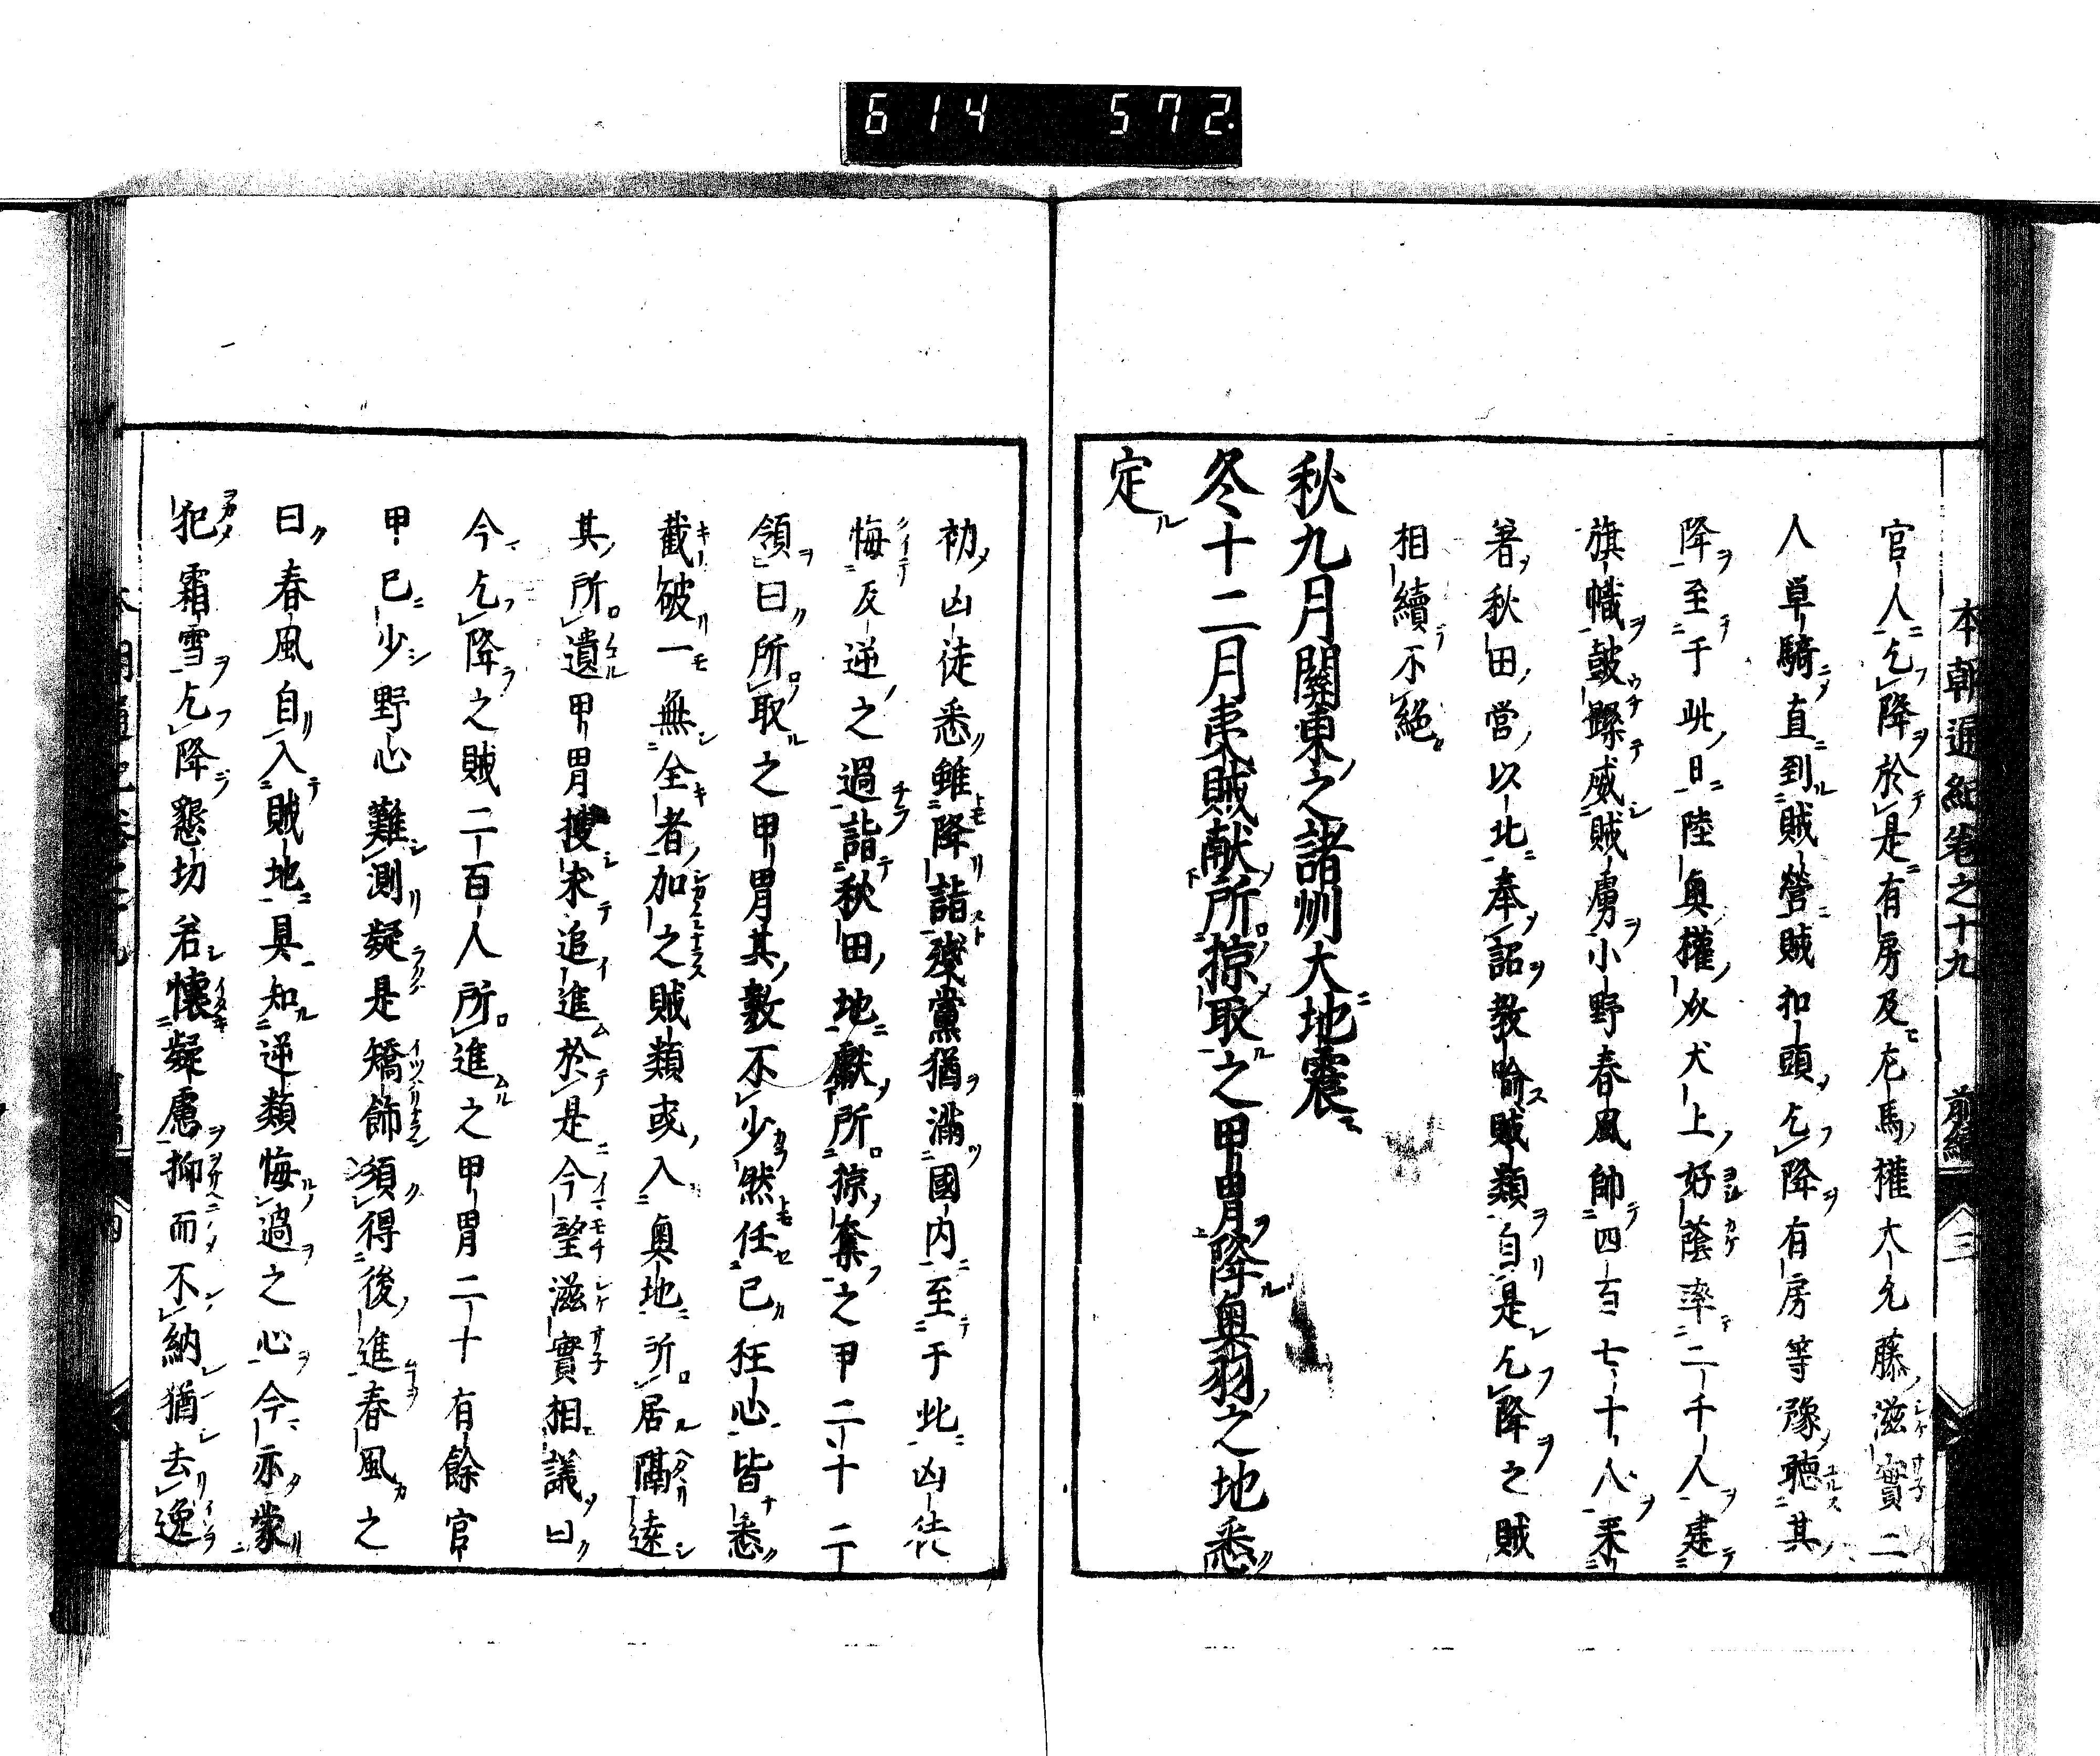 614 572.
本朝通紀卷之十九 前編 三
官人乞降於是有房及左馬權大允藤滋實二
人単騎直到賊營賊扣頭乞降有房等豫聴其
降至于此日陸奥權介犬上好蔭率二千人建
旗幟皷譟威賊虜小野春風帥四百七十人来
著秋田営以北奉詔教喻賊類自是乞降之賊
相續不絶
秋九月關東之諸州大地震
冬十二月夷賊献所掠取之甲冑降奥羽之地悉
定
初凶徒悉雖降詣残黨猶滿國内至于此凶徒
悔反逆之過詣秋田地獻所掠奪之甲二十二
領曰所取之甲冑其數不少然任己狂心皆悉
截破一無全者加之賊類或入奥地所居隔遠
其所遺甲冑捜求追進於是今望滋實相議曰
今乞降之賊二百人所進之甲冑二十有餘官
甲已少野心難測疑是矯飾須得後進春風之
曰春風自入賊地具知逆類悔過之心今亦蒙
犯霜雪乞降懇切若懷疑慮抑而不納猶去逸